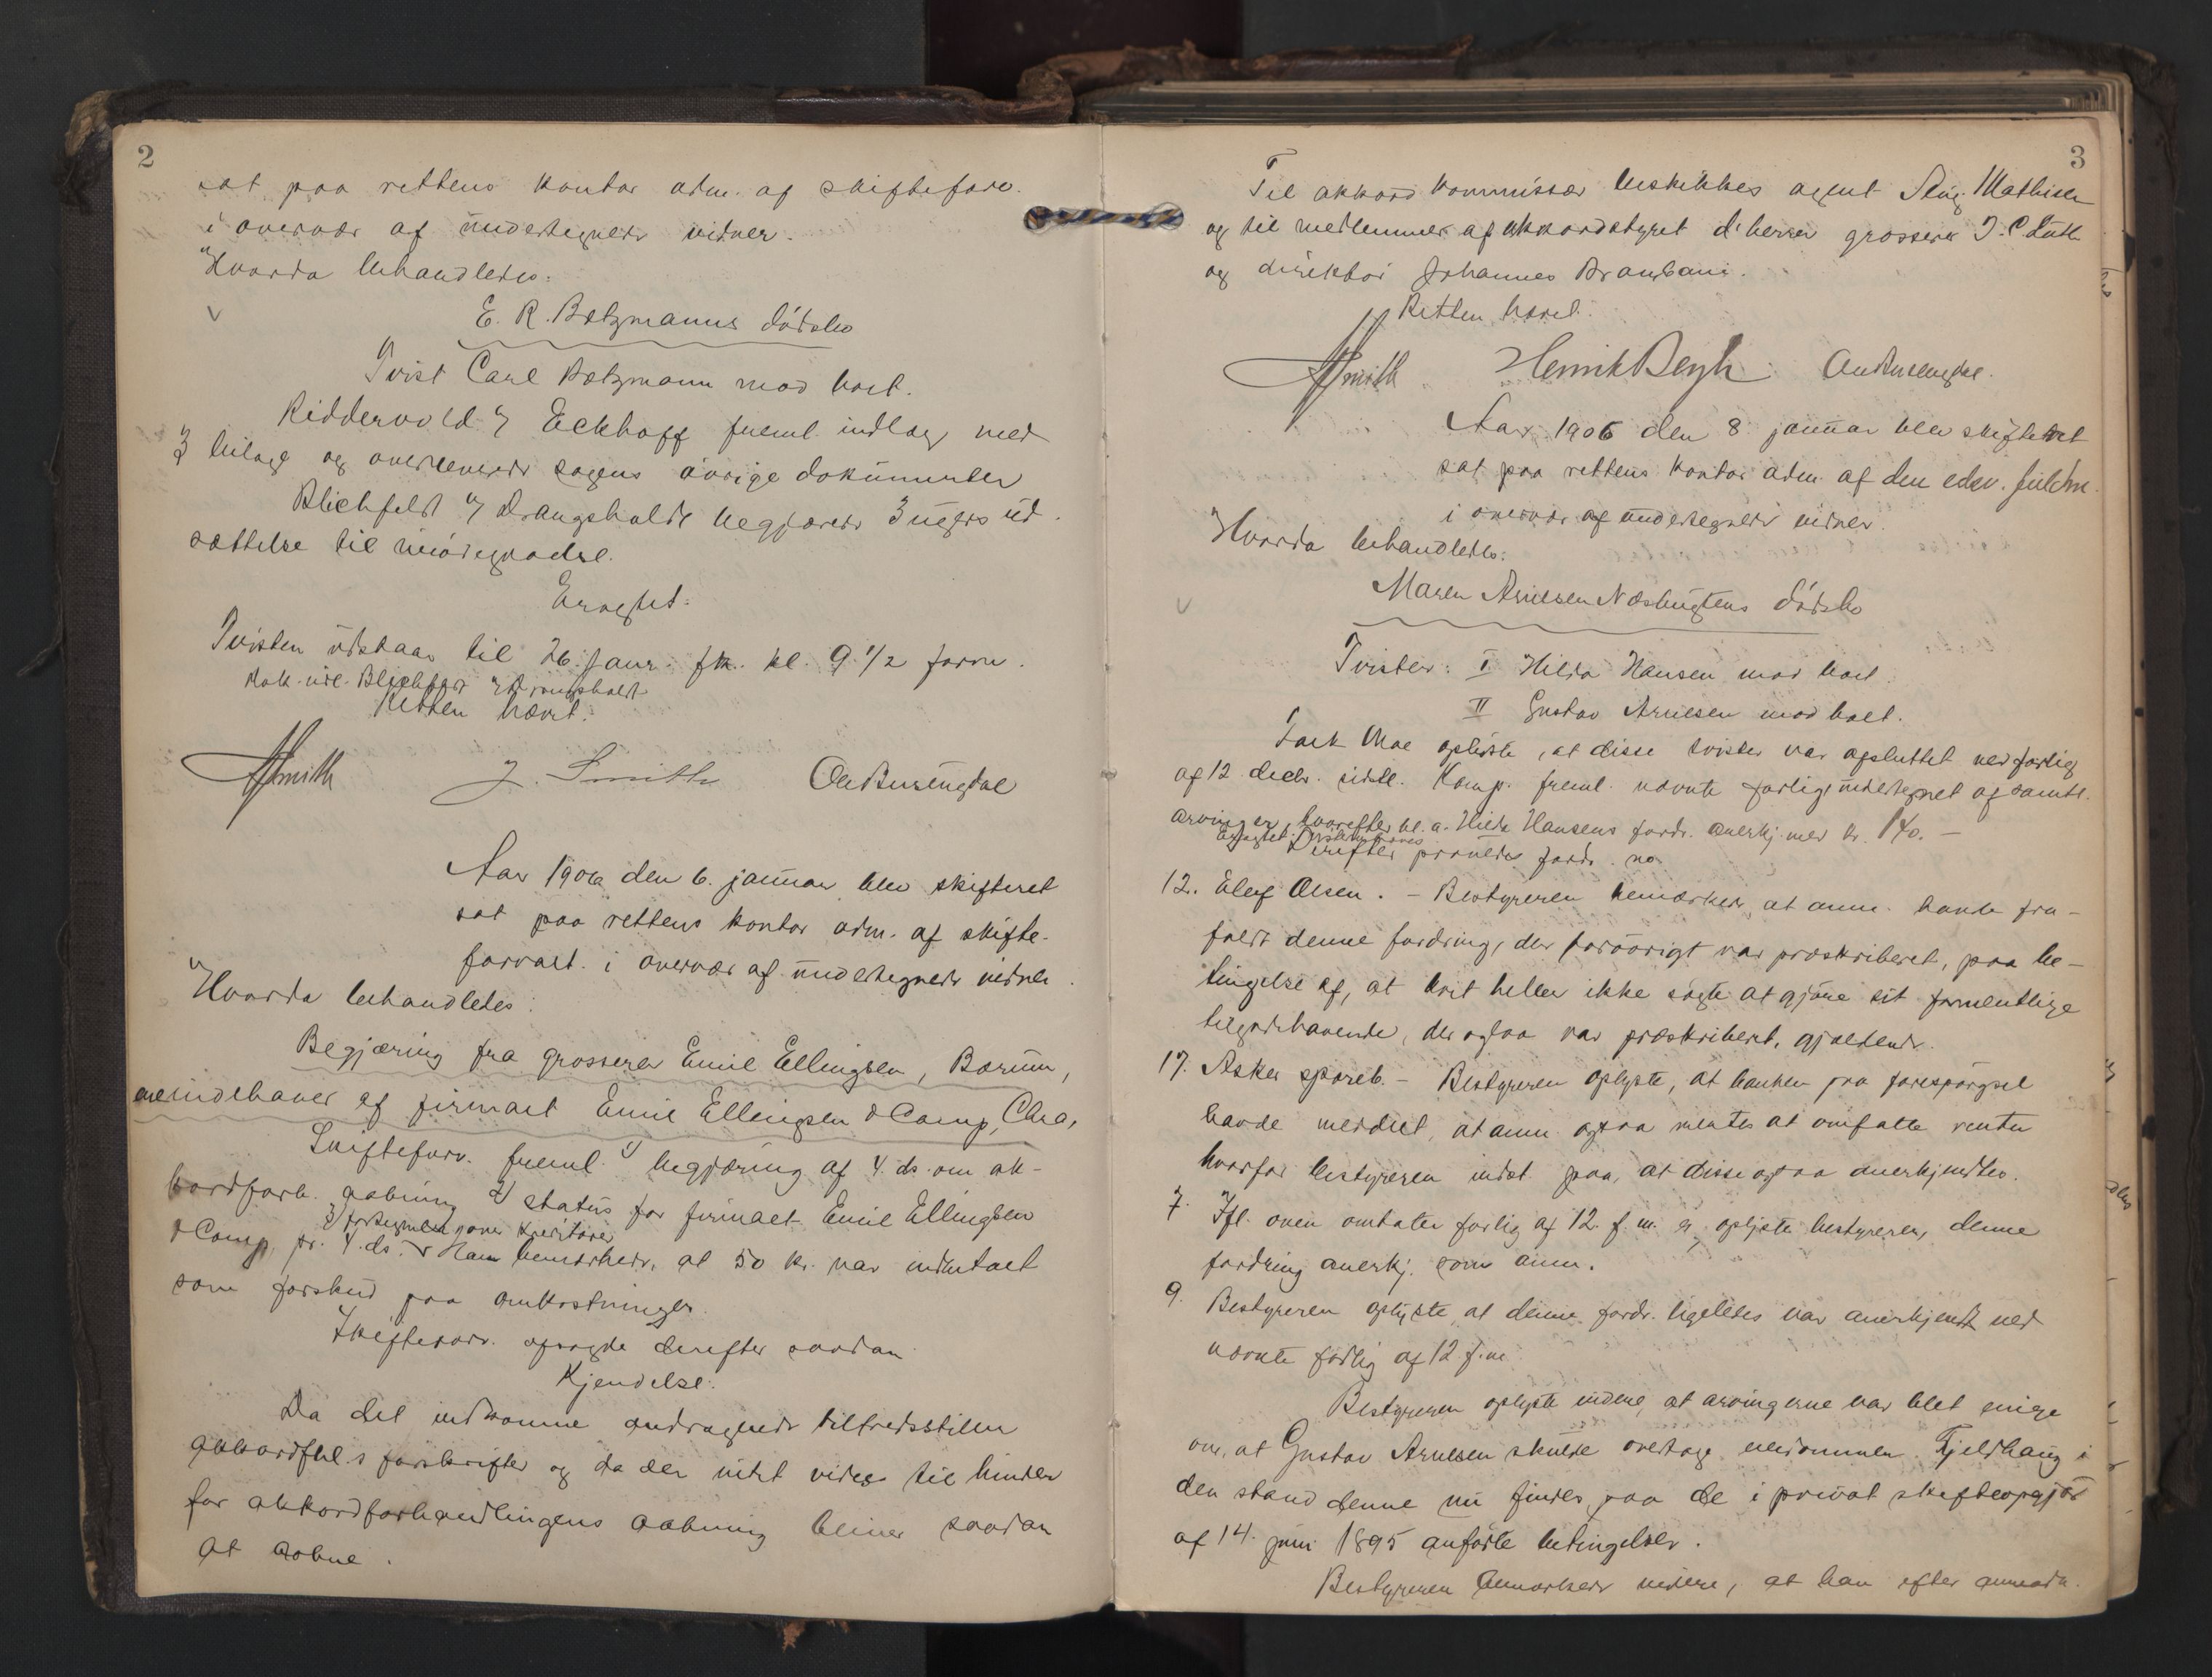 2
sat paa rettens kontor adm. af skifteforv.
i overvær af undertegnede vidner.
Hvorda behandledes:
E. R. Bætzmanns dødsbo
Tvist Carl Bætzmann mod boet.
Riddervold v/ Eckhoff freml. indlæg med
3 bilag og overleverede sagens øvrige dokumenter
Blichfeldt v/ Drangsholdt begjærede 3 ugers ud-
sættelse til imødegaaelse.
Eragtet:
Tvisten udstaar til 26. janr. fk. kl. 9 1/2 form.
Dok. udl. Blichfeldt v/ Drangsholdt
Retten hævet.
Smith J. Smith Ole Burungdal
Aar 1906 den 6. januar blev skifteret
sat paa rettens kontor adm. af skifte-
forvalt. i overvær af undertegnede vidner.
Hvorda behandledes:
Begjæring fra grosserer Emil Ellingsen, Bærum,
eneindehaver af firmaet Emil Ellingsen & Comp, Chra,
Skifteforv. freml. 1) begjæring af 4. ds. om ak-
kordforh. aabning 2) status for firmaet Emil Ellingsen
3) fortegnelse over kreditorer
& Comp, pr. 4. ds. Han bemærkede, at 50 kr. var indbetalt
som forskud paa omkostninger.
Skifteforv. afsagde derefter saadan
Kjendelse:
Da det indkomne andragende tilfredsstiller
akkordfhl.s forskrifter og da der intet vides til hinder
for akkordforhandlingens aabning bliver saadan
at aabne.
3
Til akkordkommissær beskikkes agent Stug. Mathisen
og til medlemmer af akkordstyret d'herrer grosserer J. C. Luth
og direktør Johannes
Retten hævet.
Smith Henrik Begh Ole Burungdal
Aar 1906 den 8 januar blev skifteret
sat paa rettens kontor adm. af den edsv. fuldm.
i overvær af undertegnede vidner.
Hvorda behandledes:
Maren Arnesen Næsbugtens dødsbo
Tvister: I Hilda Hansen mod boet.
II Gustav Arnesen mod boet.
Moe oplyste, at disse tvister var afsluttet ved forlig
af 12 decbr. sidstl. Komp. freml. nævnte forlig undertegnet af samtl.
arvinger, hvorefter bl. a. Hilda Hansens fordr. anerkj. med kr. 140. –
Eragtet:
Derefter prøvedes fordr. no
12. Eluf Olsen. – Bestyreren bemærkede, at anm. havde fra-
faldt denne fordring, der forøvrigt var præskriberet, paa be-
tingelse af, at boet heller ikke søgte at gjøre sit formentlige
tilgodehavende, der ogsaa var præskriberet, gjældende.
17. Asker spareb. – Bestyreren oplyste, at banken paa forespørgsel
havde meddelt, at anm. ogsaa mentes at omfatte renter
hvorfor bestyreren indst. paa, at disse ogsaa anerkjendtes.
7. Ifl. oven omtalte forlig af 12. f. m. oplyste bestyreren, denne
fordring anerkj. som anm.
9. Bestyreren oplyste, at denne fordr. ligeledes var anerkjendt ved
nævnte forlig af 12 f. m.
Bestyreren oplyste videre, at arvingerne var blet enige
om, at Gustav Arnesen skulde overtage eiendommen Fjeldhaug i
den stand denne nu findes, paa de i privat skifteopgjør
af 14. juni 1895 anførte betingelser.
Bestyreren bemærkede videre, at han efter anmodn.